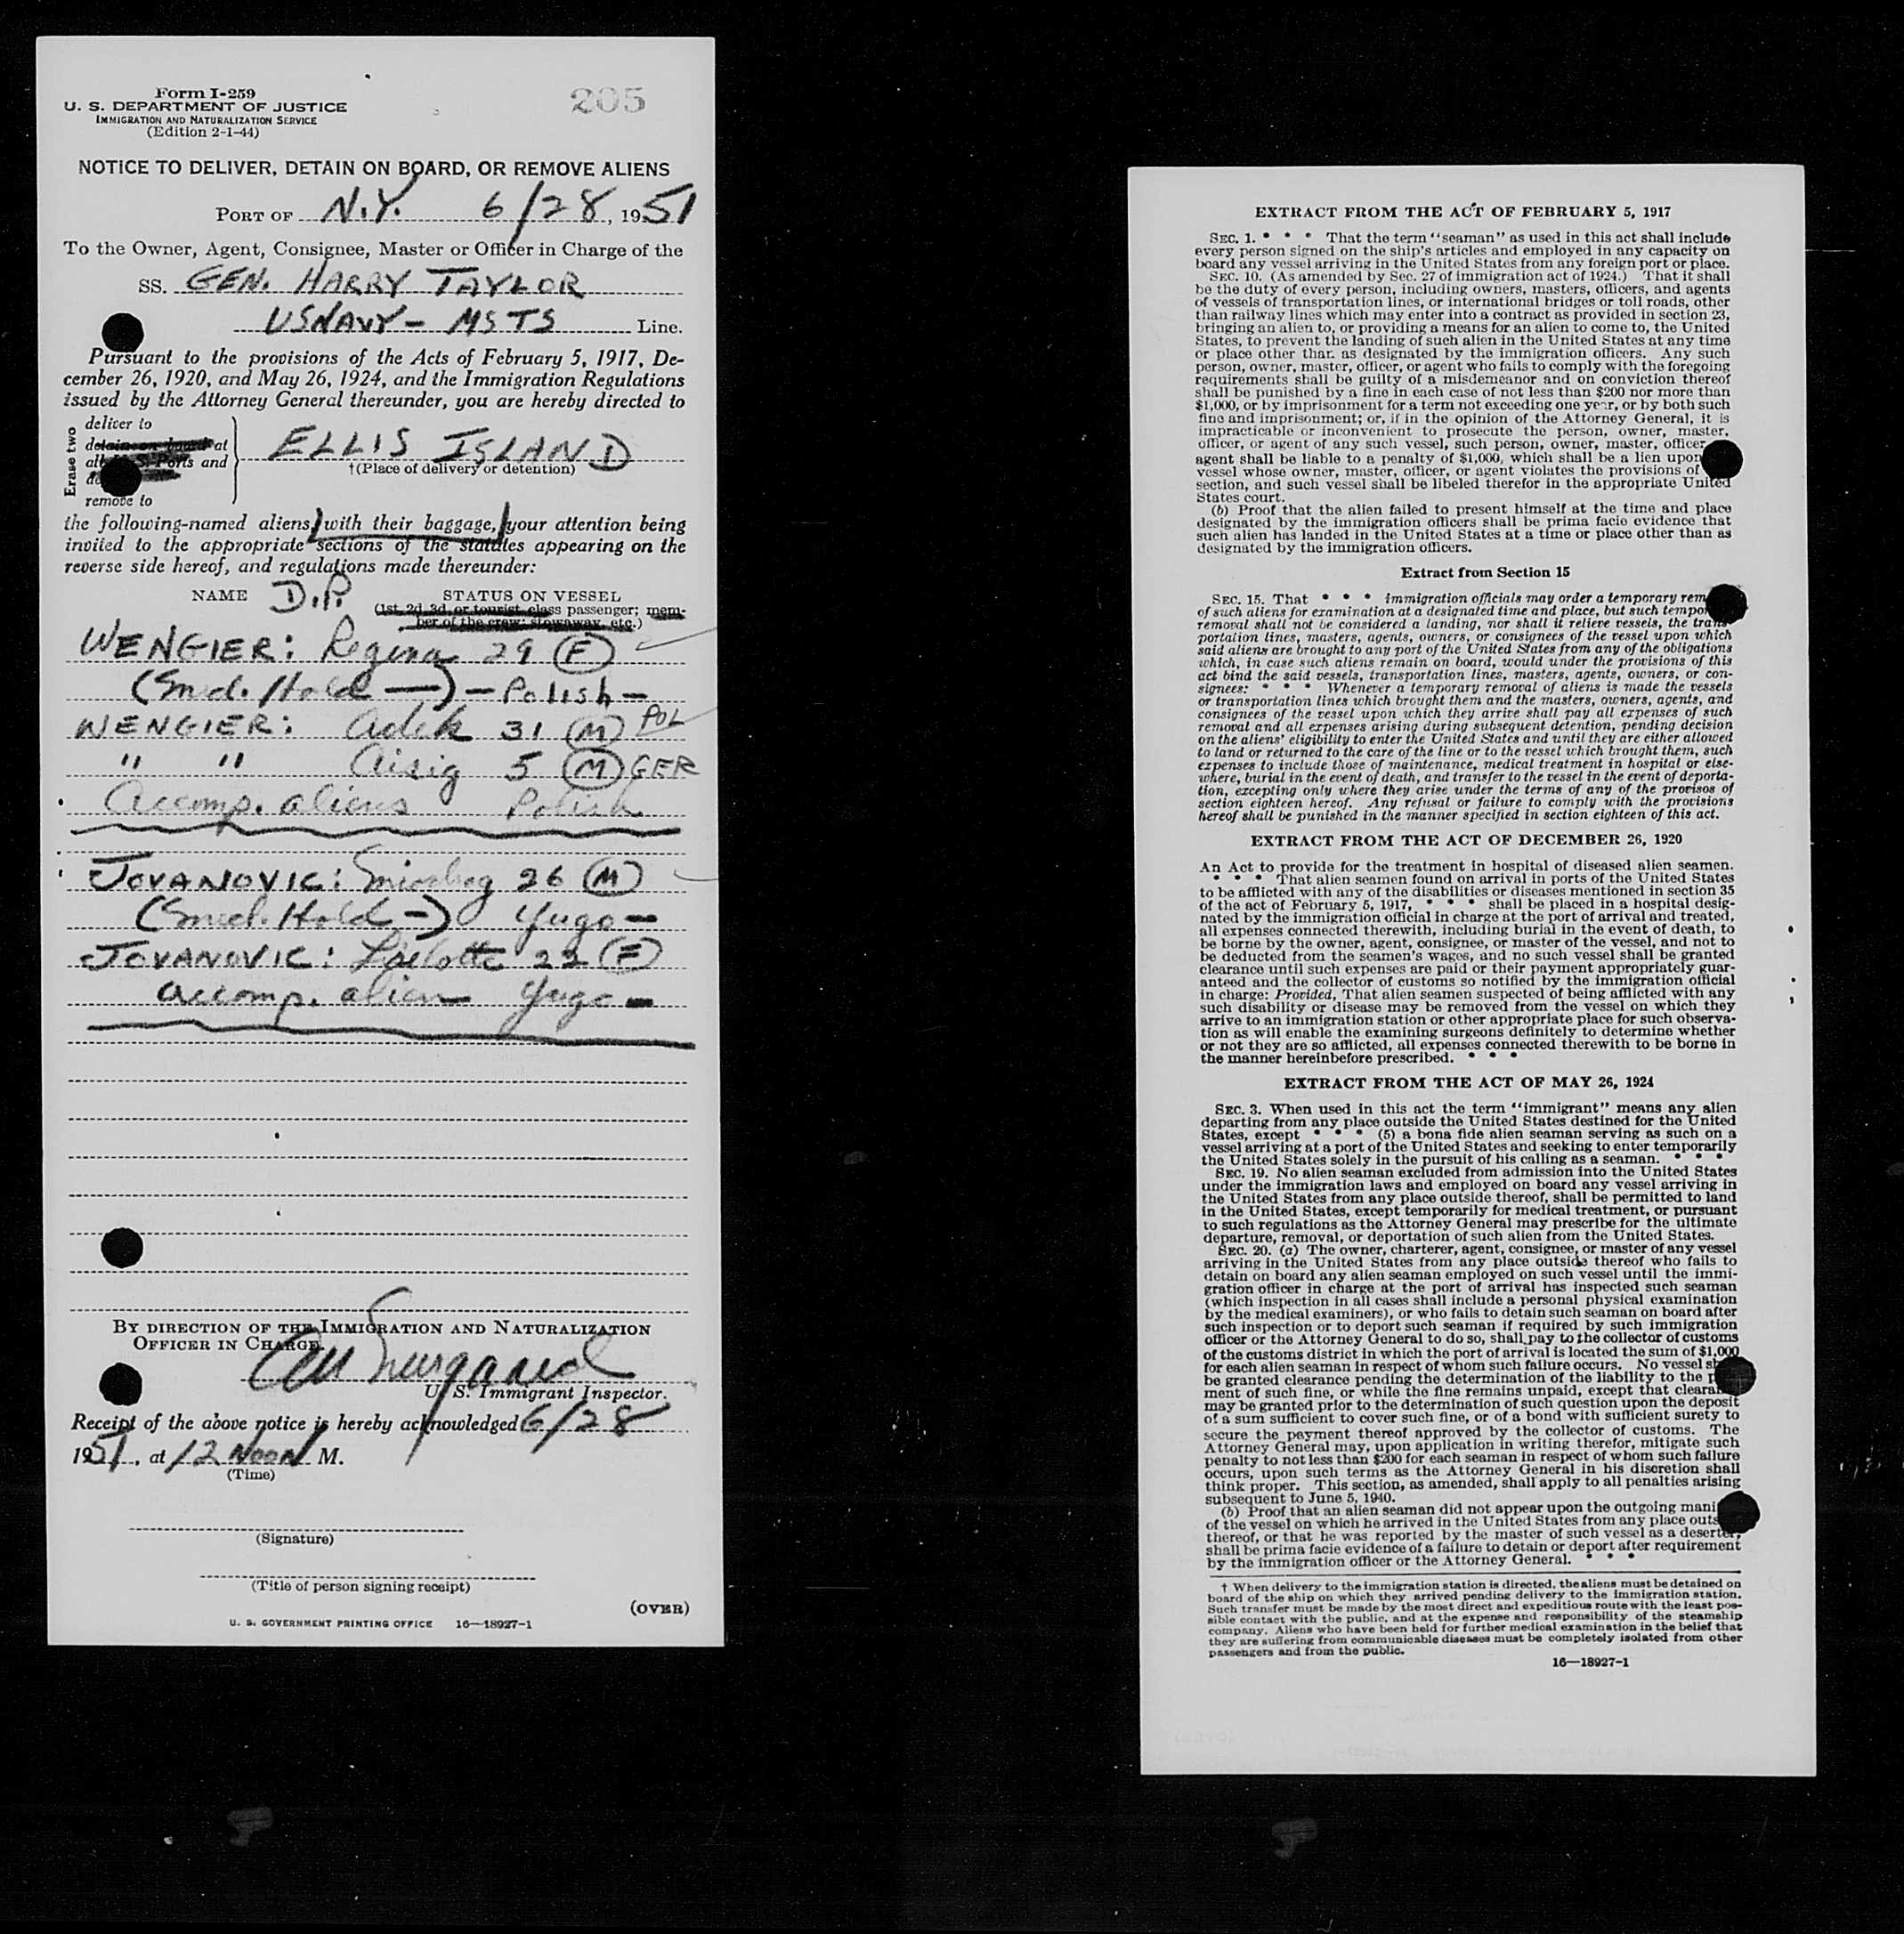 Form I-259
U. S. DEPARTMENT OF JUSTICE
IMMIGRATION AND NATURALIZATION SERVICE
(Edition 2-1-44)
205
NOTICE TO DELIVER, DETAIN ON BOARD, OR REMOVE ALIENS
PORT OF N.Y. 6/28, 1951
To the Owner, Agent, Consignee, Master or Officer in Charge of the
SS. GEN. HARRY TAYLOR
USNAVY - MSTS Line.
Pursuant to the provisions of the Acts of February 5, 1917, De-
cember 26, 1920, and May 26, 1924, and the Immigration Regulations
issued by the Attorney General thereunder, you are hereby directed to
Erase two
deliver to
detain on board at
all U. S. Ports and
remove to
ELLIS ISLAND
†(Place of delivery or detention)
the following-named aliens, with their baggage, your attention being
invited to the appropriate sections of the statutes appearing on the
reverse side hereof, and regulations made thereunder:
NAME D.P. STATUS ON VESSEL
(1st, 2d, 3d, or tourist class passenger; mem-
ber of the crew; stowaway, etc.)
WENGIER: Regina 29 (F)
(Med. Hold —) - Polish -
WENGIER: Adek 31 (M) POL
" " 5 (M) GER
Accomp. aliens Polish
JOVANOVIC: 26 (M)
(Med. Hold -) Yugo -
JOVANOVIC: Liselotte 22 (F)
accomp. alien Yugo -
BY DIRECTION OF THE IMMIGRATION AND NATURALIZATION
OFFICER IN CHARGE.
U. S. Immigrant Inspector.
Receipt of the above notice is hereby acknowledged 6/28
1951, at 12 NOON M.
(Time)
(Signature)
(Title of person signing receipt)
(OVER)
U. S. GOVERNMENT PRINTING OFFICE 16—18927-1
EXTRACT FROM THE ACT OF FEBRUARY 5, 1917
SEC. 1. * * * That the term "seaman" as used in this act shall include
every person signed on the ship's articles and employed in any capacity on
board any vessel arriving in the United States from any foreign port or place.
SEC. 10. (As amended by Sec. 27 of immigration act of 1924.) That it shall
be the duty of every person, including owners, masters, officers, and agents
of vessels of transportation lines, or international bridges or toll roads, other
than railway lines which may enter into a contract as provided in section 23,
bringing an alien to, or providing a means for an alien to come to, the United
States, to prevent the landing of such alien in the United States at any time
or place other than as designated by the immigration officers. Any such
person, owner, master, officer, or agent who fails to comply with the foregoing
requirements shall be guilty of a misdemeanor and on conviction thereof
shall be punished by a fine in each case of not less than $200 nor more than
$1,000, or by imprisonment for a term not exceeding one year, or by both such
fine and imprisonment; or, if in the opinion of the Attorney General, it is
impracticable or inconvenient to prosecute the person, owner, master,
officer, or agent of any such vessel, such person, owner, master, officer
agent shall be liable to a penalty of $1,000, which shall be a lien upon
vessel whose owner, master, officer, or agent violates the provisions of
section, and such vessel shall be libeled therefor in the appropriate United
States court.
(b) Proof that the alien failed to present himself at the time and place
designated by the immigration officers shall be prima facie evidence that
such alien has landed in the United States at a time or place other than as
designated by the immigration officers.
Extract from Section 15
SEC. 15. That * * * immigration officials may order a temporary rem
of such aliens for examination at a designated time and place, but such tempor
removal shall not be considered a landing, nor shall it relieve vessels, the trans-
portation lines, masters, agents, owners, or consignees of the vessel upon which
said aliens are brought to any port of the United States from any of the obligations
which, in case such aliens remain on board, would under the provisions of this
act bind the said vessels, transportation lines, masters, agents, owners, or con-
signees: * * * Whenever a temporary removal of aliens is made the vessels
or transportation lines which brought them and the masters, owners, agents, and
consignees of the vessel upon which they arrive shall pay all expenses of such
removal and all expenses arising during subsequent detention, pending decision
on the aliens' eligibility to enter the United States and until they are either allowed
to land or returned to the care of the line or to the vessel which brought them, such
expenses to include those of maintenance, medical treatment in hospital or else-
where, burial in the event of death, and transfer to the vessel in the event of deporta-
tion, excepting only where they arise under the terms of any of the provisos of
section eighteen hereof. Any refusal or failure to comply with the provisions
hereof shall be punished in the manner specified in section eighteen of this act.
EXTRACT FROM THE ACT OF DECEMBER 26, 1920
An Act to provide for the treatment in hospital of diseased alien seamen.
* * * That alien seamen found on arrival in ports of the United States
to be afflicted with any of the disabilities or diseases mentioned in section 35
of the act of February 5, 1917, * * * shall be placed in a hospital desig-
nated by the immigration official in charge at the port of arrival and treated,
all expenses connected therewith, including burial in the event of death, to
be borne by the owner, agent, consignee, or master of the vessel, and not to
be deducted from the seamen's wages, and no such vessel shall be granted
clearance until such expenses are paid or their payment appropriately guar-
anteed and the collector of customs so notified by the immigration official
in charge: Provided, That alien seamen suspected of being afflicted with any
such disability or disease may be removed from the vessel on which they
arrive to an immigration station or other appropriate place for such observa-
tion as will enable the examining surgeons definitely to determine whether
or not they are so afflicted, all expenses connected therewith to be borne in
the manner hereinbefore prescribed. * * *
EXTRACT FROM THE ACT OF MAY 26, 1924
SEC. 3. When used in this act the term "immigrant" means any alien
departing from any place outside the United States destined for the United
States, except * * * (5) a bona fide alien seaman serving as such on a
vessel arriving at a port of the United States and seeking to enter temporarily
the United States solely in the pursuit of his calling as a seaman. * * *
SEC. 19. No alien seaman excluded from admission into the United States
under the immigration laws and employed on board any vessel arriving in
the United States from any place outside thereof, shall be permitted to land
in the United States, except temporarily for medical treatment, or pursuant
to such regulations as the Attorney General may prescribe for the ultimate
departure, removal, or deportation of such alien from the United States.
SEC. 20. (a) The owner, charterer, agent, consignee, or master of any vessel
arriving in the United States from any place outside thereof who fails to
detain on board any alien seaman employed on such vessel until the immi-
gration officer in charge at the port of arrival has inspected such seaman
(which inspection in all cases shall include a personal physical examination
by the medical examiners), or who fails to detain such seaman on board after
such inspection or to deport such seaman if required by such immigration
officer or the Attorney General to do so, shall pay to the collector of customs
of the customs district in which the port of arrival is located the sum of $1,000
for each alien seaman in respect of whom such failure occurs. No vessel sh
be granted clearance pending the determination of the liability to the p
ment of such fine, or while the fine remains unpaid, except that cleara
may be granted prior to the determination of such question upon the deposit
of a sum sufficient to cover such fine, or of a bond with sufficient surety to
secure the payment thereof approved by the collector of customs. The
Attorney General may, upon application in writing therefor, mitigate such
penalty to not less than $200 for each seaman in respect of whom such failure
occurs, upon such terms as the Attorney General in his discretion shall
think proper. This section, as amended, shall apply to all penalties arising
subsequent to June 5, 1940.
(b) Proof that an alien seaman did not appear upon the outgoing mani
of the vessel on which he arrived in the United States from any place outs
thereof, or that he was reported by the master of such vessel as a deserter,
shall be prima facie evidence of a failure to detain or deport after requirement
by the immigration officer or the Attorney General. * * *
† When delivery to the immigration station is directed, the aliens must be detained on
board of the ship on which they arrived pending delivery to the immigration station.
Such transfer must be made by the most direct and expeditious route with the least pos-
sible contact with the public, and at the expense and responsibility of the steamship
company. Aliens who have been held for further medical examination in the belief that
they are suffering from communicable diseases must be completely isolated from other
passengers and from the public.
16—18927-1